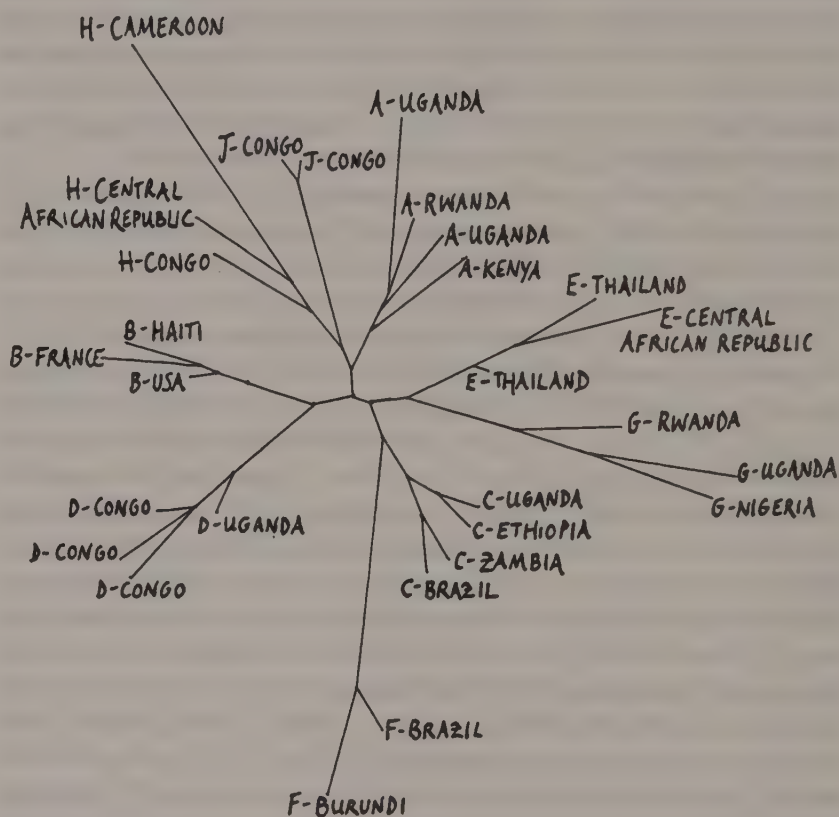 H-CAMEROON
A-UGANDA
J-CONGO
J-CONGO
H-CENTRAL
AFRICAN REPUBLIC
A-RWANDA
A-UGANDA
H-CONGO
A-KENYA
E-THAILAND
E-CENTRAL
AFRICAN REPUBLIC
B-HAITI
B-FRANCE
B-USA
E-THAILAND
G-RWANDA
G-UGANDA
G-NIGERIA
D-CONGO
D-UGANDA
C-UGANDA
C-ETHIOPIA
D-CONGO
C-ZAMBIA
D-CONGO
C-BRAZIL
F-BRAZIL
F-BURUNDI